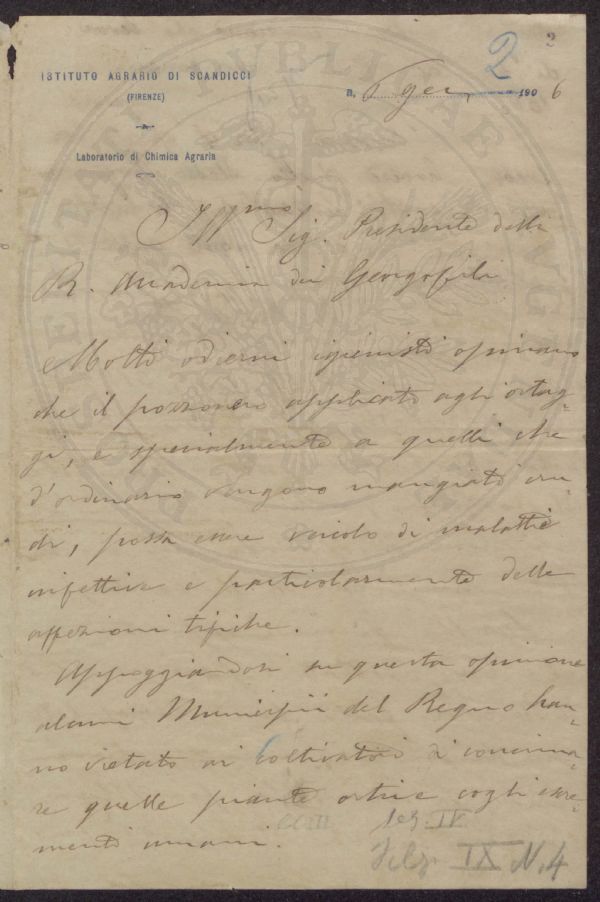 2
3
ISTITUTO AGRARIO DI SCANDICCI
(FIRENZE)
Laboratorio di Chimica Agraria
a, 6 gen. 1906
Ill.mo Sig. Presidente della
R. Accademia dei Georgofili
Molti odierni igienisti opinano
che il pozzonero applicato agli ortag-
gi, e specialmente a quelli che
d'ordinario vengono mangiati cru-
di, possa essere veicolo di malattie
infettive e particolarmente delle
affezioni tifiche.
Appoggiandosi su questa opinione
alcuni Municipii del Regno han-
no vietato ai coltivatori di concima-
re quelle piante ortive cogli escre-
menti umani.
IV
IX N. 4